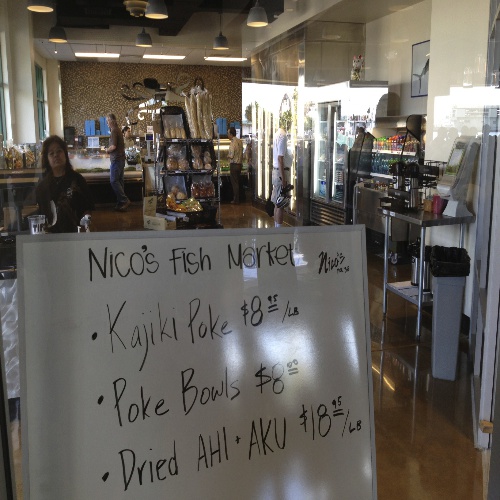 Nico's Fish Market Nico's
• Kajiki Poke $8.95/LB
• Poke Bowls $8.00
• Dried AHI + AKU $18.95/LB